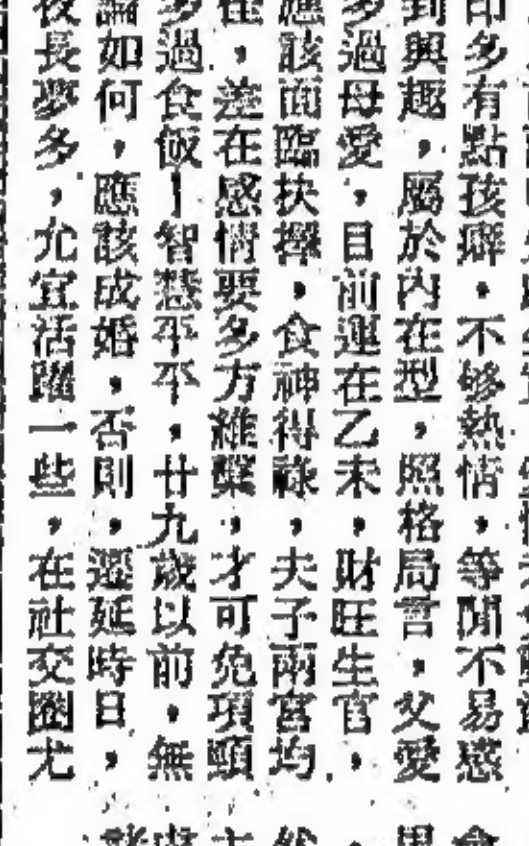 印多有點孩癖，不够熱情，等閒不易感
到興趣，屬於內在型，照格局言，父愛
多過母愛，目前運在乙未，財旺生官，
應該面臨抉擇，食神得祿，夫子兩宮均
在，差在感情要多方維繫，才可免項頸
多過食飯｜智慧平平，廿九歲以前，無
論如何，應該成婚，否則，遷延時日，
夜長夢多，尤宜活躍一些，在社交圈尤